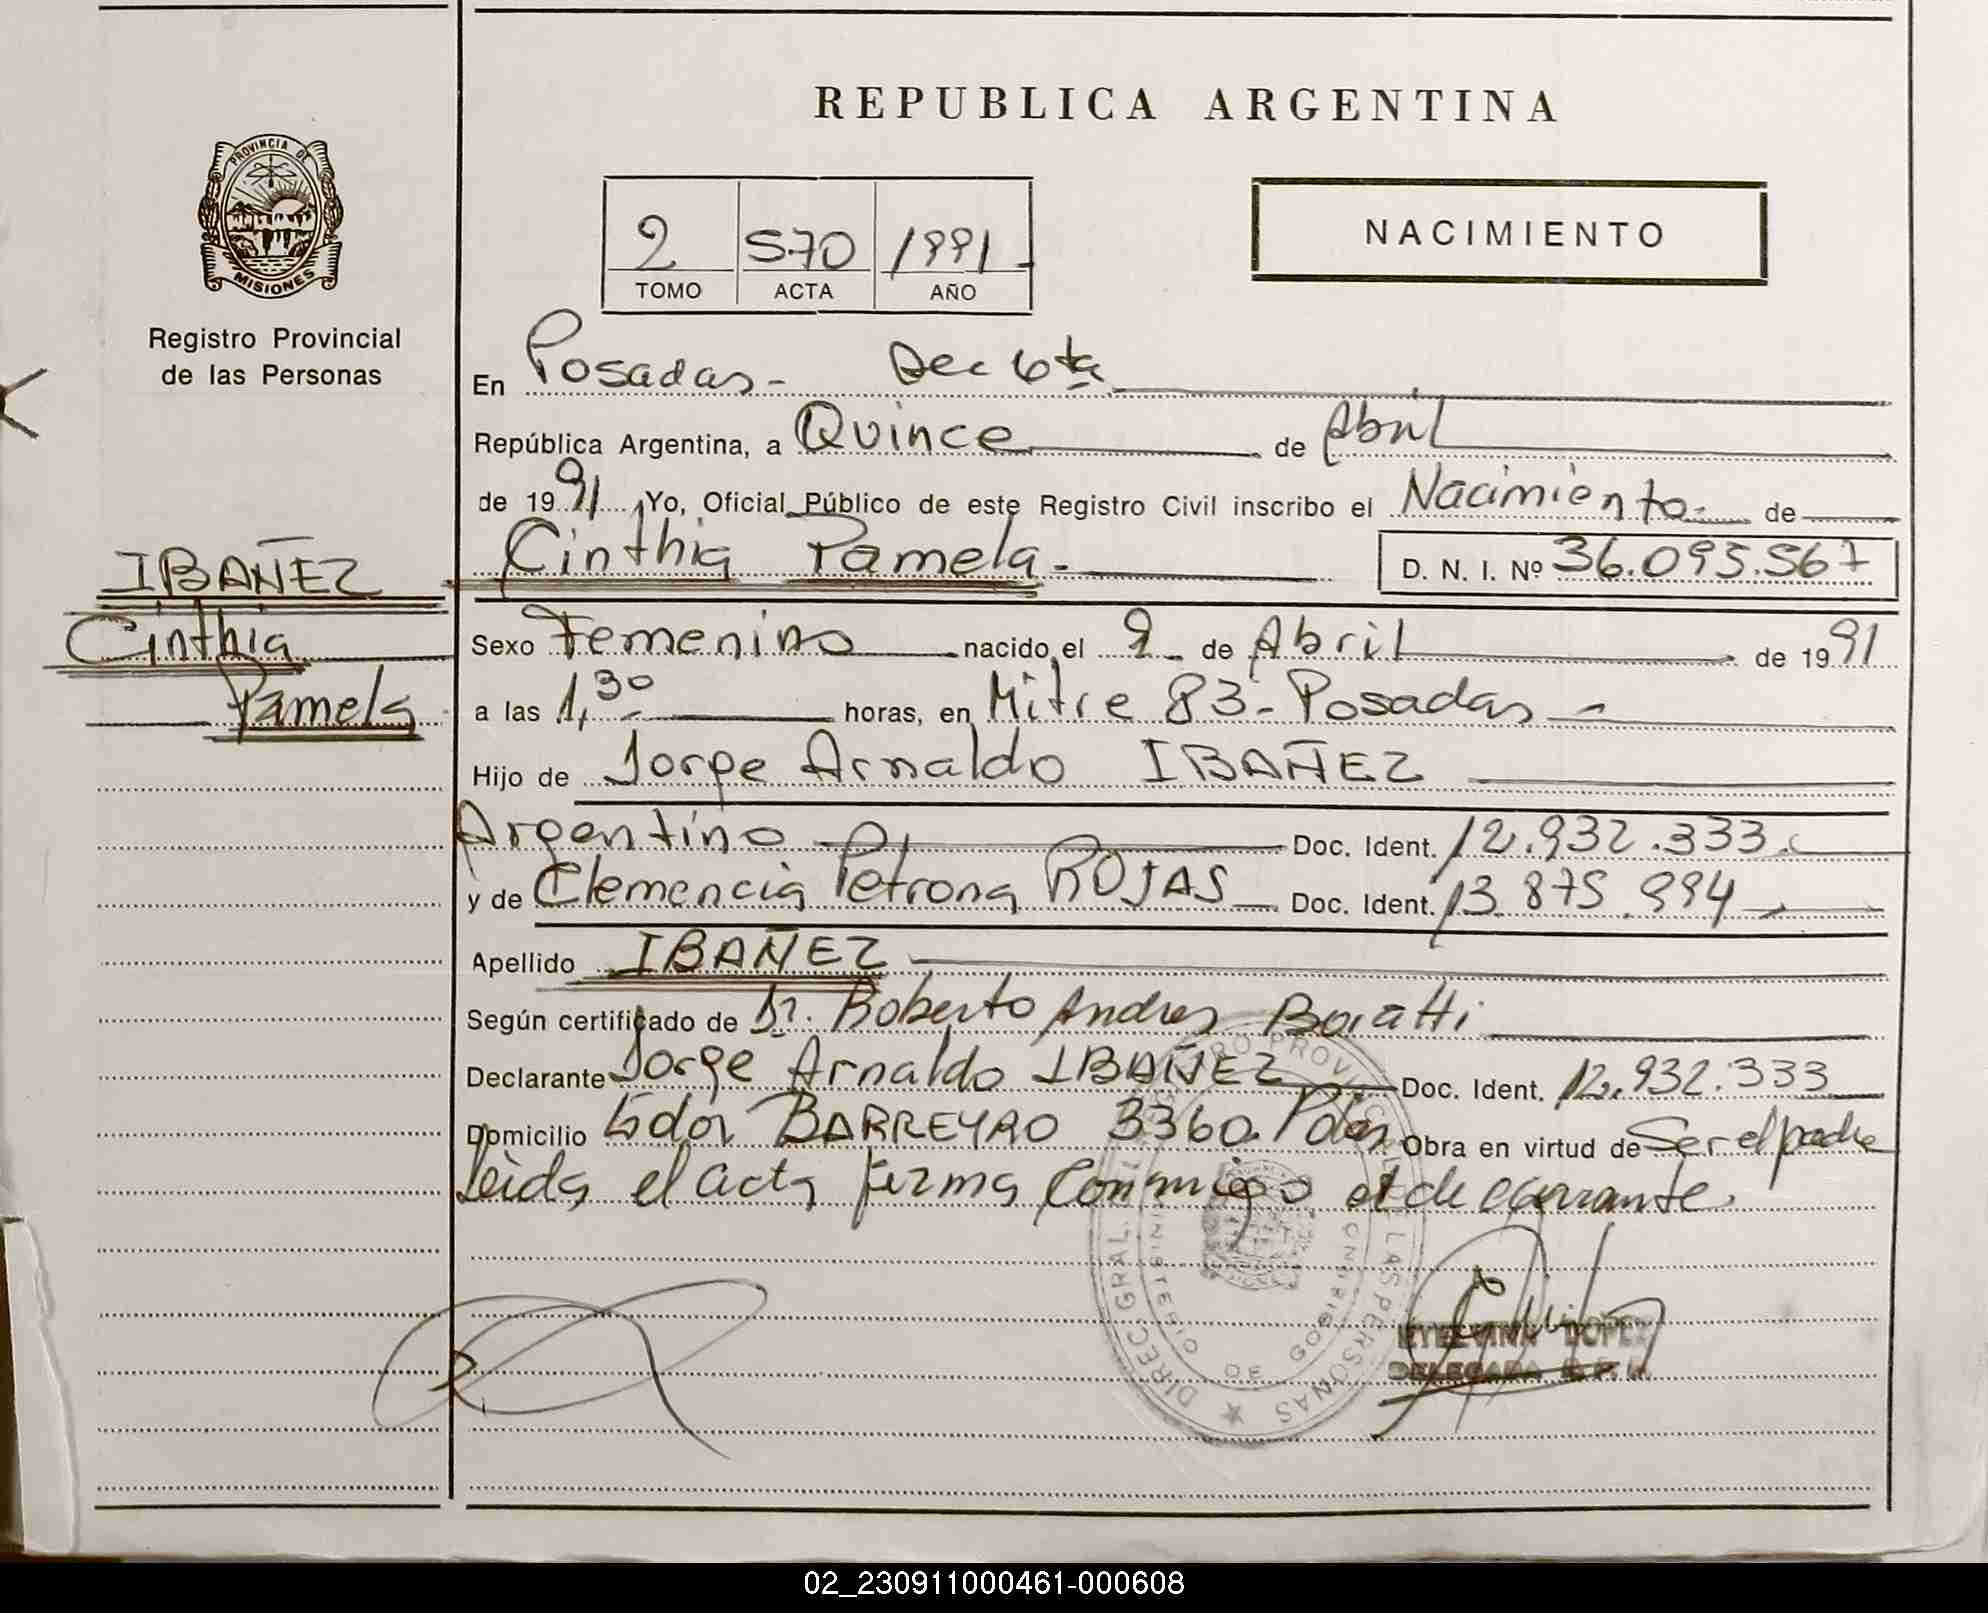 REPUBLICA ARGENTINA
PROVINCIA DE
MISIONES
Registro Provincial
de las Personas
2 570 1991
TOMO ACTA AÑO
NACIMIENTO
En Posadas - Sec 6ta
República Argentina, a Quince de Abril
de 1991 Yo, Oficial Público de este Registro Civil inscribo el Nacimiento de
Cinthia Pamela D. N. I. Nº 36.095.567
IBAÑEZ
Cinthia
Pamela
Sexo Femenino nacido el 2 de Abril de 1991
a las 1,30 horas, en Mitre 83 - Posadas
Hijo de Jorge Arnaldo IBAÑEZ
Argentino Doc. Ident. 12.932.333
y de Clemencia Petrona ROJAS Doc. Ident. 13.875.994
Apellido IBAÑEZ
Según certificado de Dr. Roberto Andres
Declarante Jorge Arnaldo IBAÑEZ Doc. Ident. 12.932.333
Domicilio BARREYRO 3360. Obra en virtud de Ser el padre
Leida el acta firma conmigo el declarante.
DIREC. GRAL. REGISTRO PROVINCIAL DE LAS PERSONAS
MINISTERIO DE GOBIERNO
LOPEZ
DELEGADA R. P. P.
02_230911000461-000608